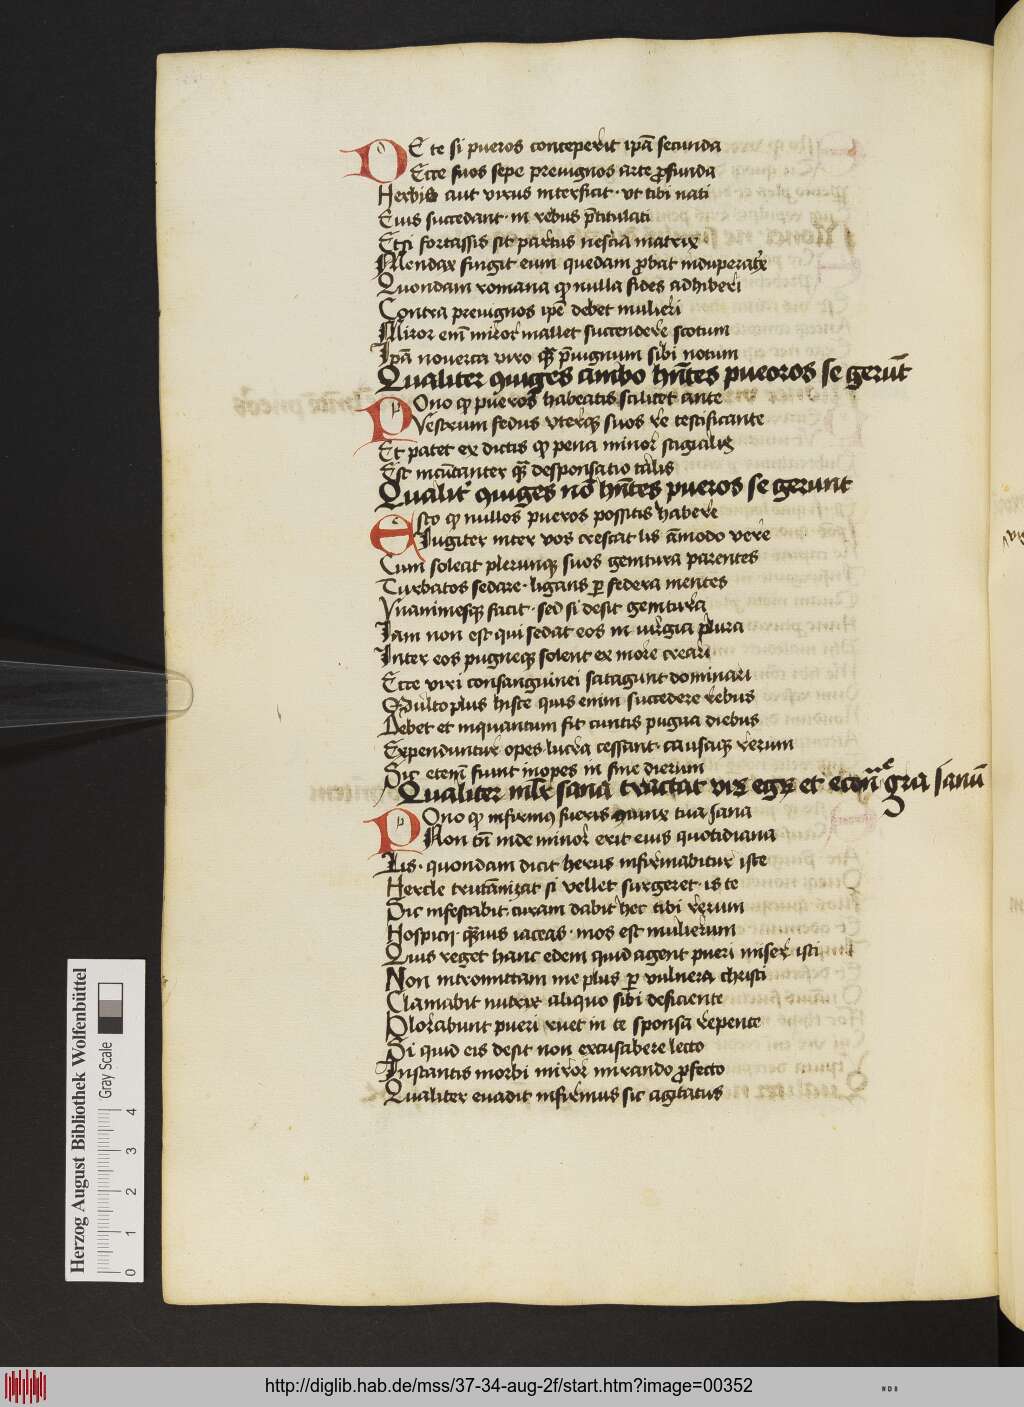 DE te si pueros conceperit ipā secunda
Ecce suos sepe preuignos arte ꝓfunda
Herbis aut virus interficit · vt tibi nati
Eius succedant · in rebus p̄titulati
Etsi fortassis sit partus nescia matrix
Mendax fingit eum quedam ꝓbat induperatx̄
Quondam romana qꝫ nulla fides adhiberi
Contra preuignos ipē debet mulieri
Miror em̄ miror mallet succendere scotum
Ipā nouerca viro qᷓꝫ p̄uignum sibi notum
Qualiter ꝯiuges ambo hn̄tes pueoros se gerūt
POno qꝫ pueros habeatis scilicet ante
Vestrum fedus vterqꝫ suos re testificante
Et patet ex dictis qꝫ pena minor stigialis
Est incūctanter qᷓꝫ desponsatio talis
Qualit' ꝯiuges nō hn̄tes pueros se gerunt
ESto qꝫ nullos pueros possitis habere
Iugiter inter vos crescat lis āmodo vere
Cum soleat plerumqꝫ suos genitura parentes
Turbatos sedare · ligans ꝑ federa mentes
Vnanimesqꝫ facit · sed si desit genitura
Iam non est qui sedat eos in virgia plura
Inter eos pugneqꝫ solent ex more creari
Ecce viri consanguinei satagunt dominari
Multo plus hiisce quis enim succedere rebus
Debet et inquantum fit cunctis pugna diebus
Expenduntur opes lucra cessant · causaqꝫ rerum
Sic etem̄ fiunt inopes in fine dierum
Qualiter mlr̄ sana tractat vir̄ egꝝ et ecōn̄ egra sanū
POno qꝫ infirmꝰ fueris ꝯiunx tua sana
Non tn̄ inde minor erit eius quotidiana
Lis · quondam dicit herus infirmabitur iste
Hercle trutānizat si vellet surgeret · is te
Sic infestabit curam dabit hec tibi rerum
Hospicii · qᷓꝫuis iaceas · mos est mulierum
Quis reget hanc edem quid agent pueri miser isti
Non intromittam me plus ꝑ vulnera christi
Clamabit nutrix aliquo sibi deficiente
Plorabunt pueri ruet in te sponsa repente
Si quid eis desit non excusabere lecto
Instantis morbi miror mirando ꝓfecto
Qualiter euadit infirmus sic agitatus
Herzog August Bibliothek Wolfenbüttel
Gray Scale
0 1 2 3 4
http://diglib.hab.de/mss/37-34-aug-2f/start.htm?image=00352